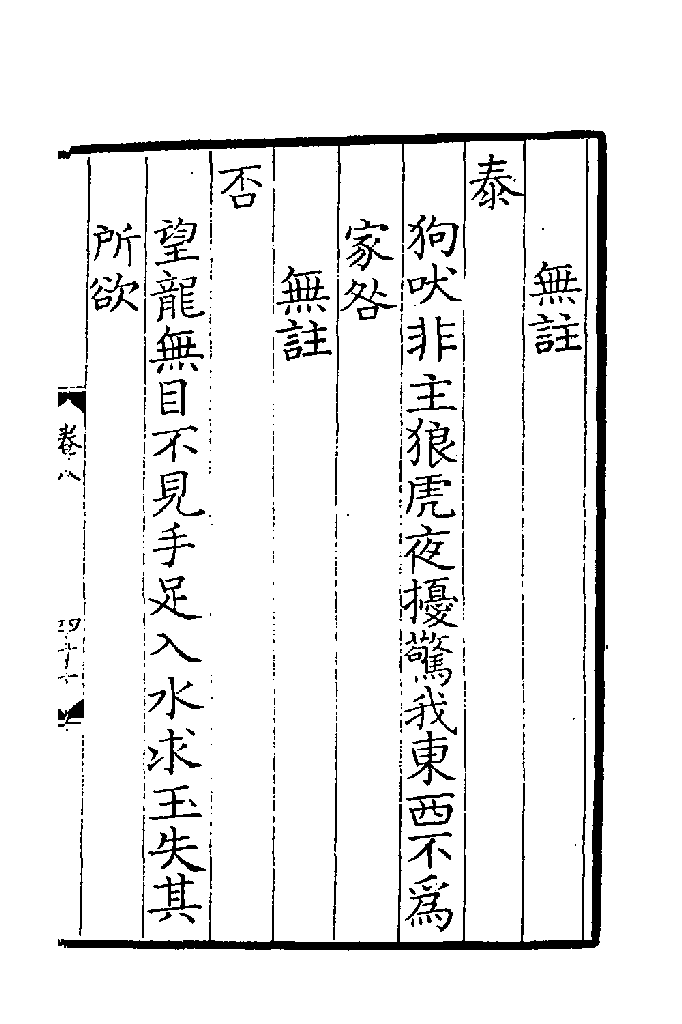 無註
泰
狗吠非主狼虎夜擾驚我東西不爲
家咎
無註
否
望龍無目不見手足入水求玉失其
所欲
卷八